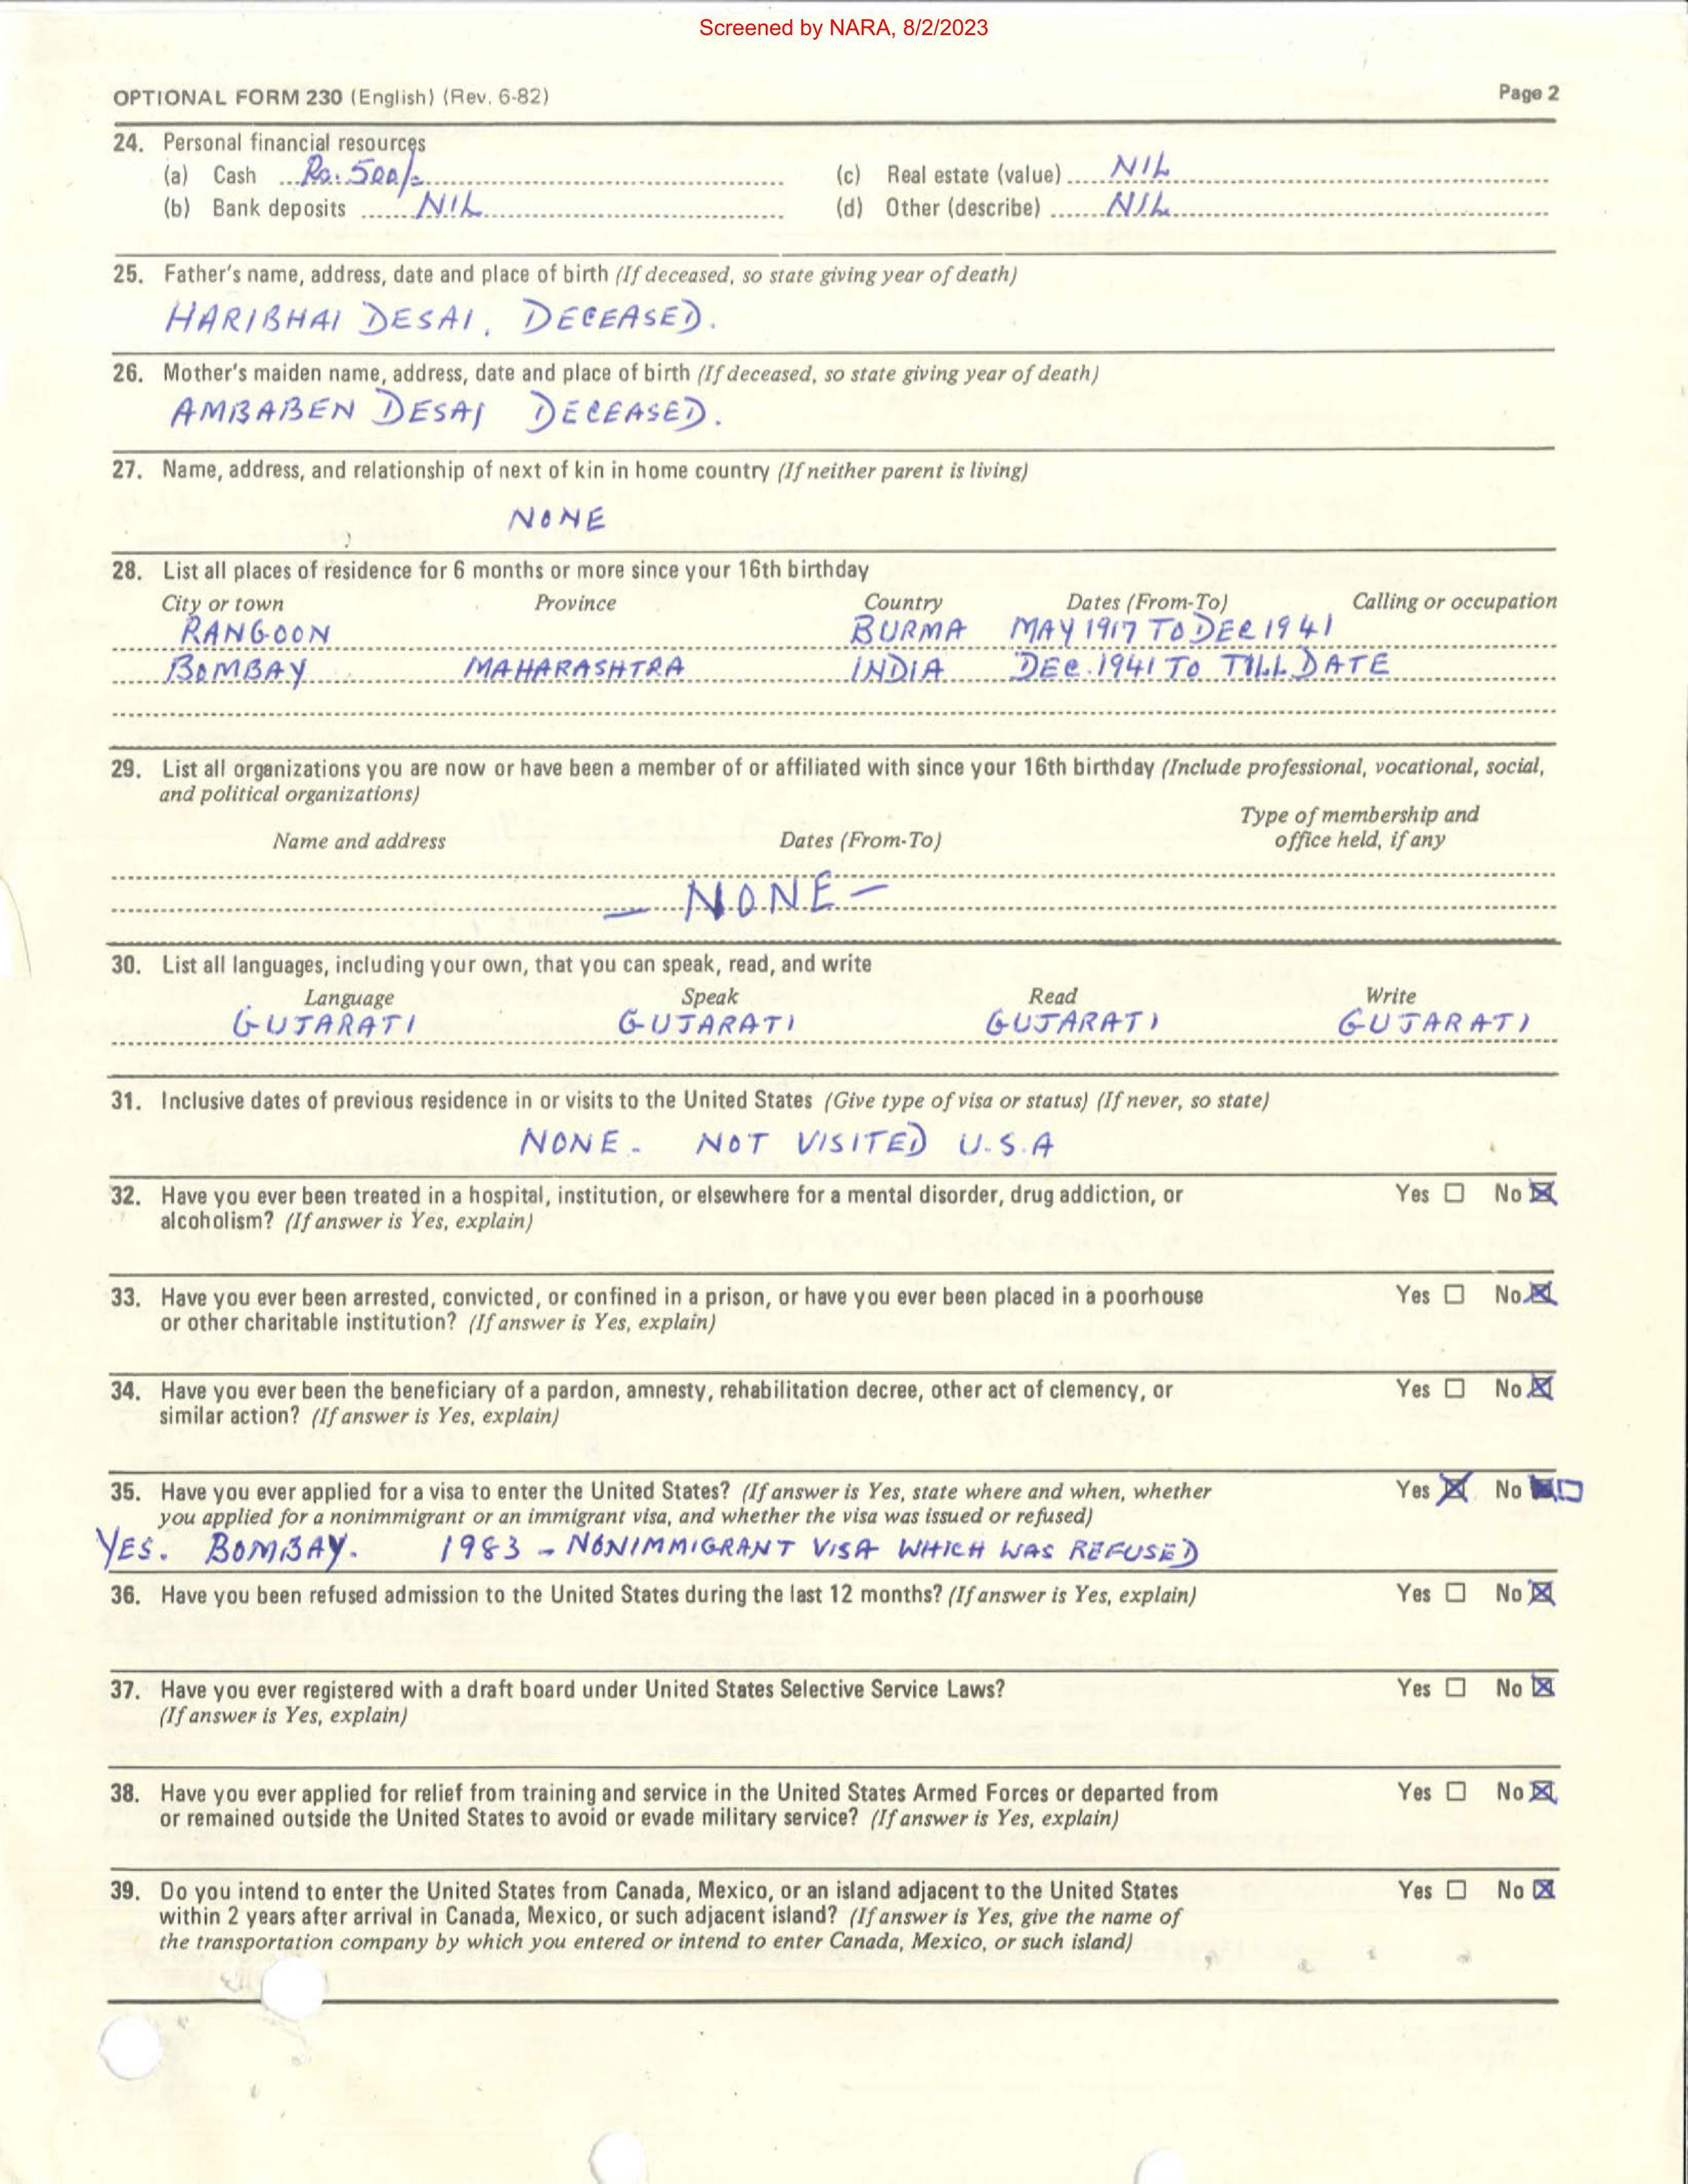 Screened by NARA, 8/2/2023
OPTIONAL FORM 230 (English) (Rev. 6-82) Page 2
24. Personal financial resources
(a) Cash Rs. 500/= (c) Real estate (value) NIL
(b) Bank deposits NIL (d) Other (describe) NIL
25. Father's name, address, date and place of birth (If deceased, so state giving year of death)
HARIBHAI DESAI, DECEASED.
26. Mother's maiden name, address, date and place of birth (If deceased, so state giving year of death)
AMBABEN DESAI DECEASED.
27. Name, address, and relationship of next of kin in home country (If neither parent is living)
NONE
28. List all places of residence for 6 months or more since your 16th birthday
City or town Province Country Dates (From-To) Calling or occupation
RANGOON BURMA MAY 1917 TO DEC 1941
BOMBAY MAHARASHTRA INDIA DEC. 1941 TO TILL DATE
29. List all organizations you are now or have been a member of or affiliated with since your 16th birthday (Include professional, vocational, social,
and political organizations)
Type of membership and
Name and address Dates (From-To) office held, if any
— NONE —
30. List all languages, including your own, that you can speak, read, and write
Language Speak Read Write
GUJARATI GUJARATI GUJARATI GUJARATI
31. Inclusive dates of previous residence in or visits to the United States (Give type of visa or status) (If never, so state)
NONE - NOT VISITED U.S.A
32. Have you ever been treated in a hospital, institution, or elsewhere for a mental disorder, drug addiction, or Yes ☐ No ☒
alcoholism? (If answer is Yes, explain)
33. Have you ever been arrested, convicted, or confined in a prison, or have you ever been placed in a poorhouse Yes ☐ No ☒
or other charitable institution? (If answer is Yes, explain)
34. Have you ever been the beneficiary of a pardon, amnesty, rehabilitation decree, other act of clemency, or Yes ☐ No ☒
similar action? (If answer is Yes, explain)
35. Have you ever applied for a visa to enter the United States? (If answer is Yes, state where and when, whether Yes ☒ No ☐
you applied for a nonimmigrant or an immigrant visa, and whether the visa was issued or refused)
YES. BOMBAY. 1983 - NONIMMIGRANT VISA WHICH WAS REFUSED
36. Have you been refused admission to the United States during the last 12 months? (If answer is Yes, explain) Yes ☐ No ☒
37. Have you ever registered with a draft board under United States Selective Service Laws? Yes ☐ No ☒
(If answer is Yes, explain)
38. Have you ever applied for relief from training and service in the United States Armed Forces or departed from Yes ☐ No ☒
or remained outside the United States to avoid or evade military service? (If answer is Yes, explain)
39. Do you intend to enter the United States from Canada, Mexico, or an island adjacent to the United States Yes ☐ No ☒
within 2 years after arrival in Canada, Mexico, or such adjacent island? (If answer is Yes, give the name of
the transportation company by which you entered or intend to enter Canada, Mexico, or such island)